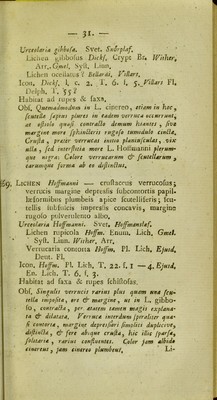 — 31. —
Urceolaria gibbosa. Svet. Snörplaf.
Lichen gibbosus Dicks. Crypt. Br. Wither,
Arr. Gmel. Syst. Linn.
Lichen ocellatus? Bellardi, Villars.
Icon. Dicks. l. c. 2. T. 6. f. 5. Villars Fl.
Delph. T. 55?
Habitat ad rupes & saxa.
Obs. Quemadmodum in L. cinereo, etiam in hoc,
scutellæ sæpius plures in eadem verruca occurrunt,
ut ostiolo quasi contracto demum hiantes, sive
margine more sphincteris rugoso tumidulo cincta.
Crusta, præter verrucas vulgo planiuscula, vix
ulla, sed interstitia more L. Hoffmanni plerum-
que nigra. Colore verrucarum & scutellarum,
earumque forma ab eo distinctus.
69. Lichen Hoffmanni — crustaceus verrucosus;
verrucis margine depressis subcontortis papil-
læformibus plumbeis apice scutelliferis; scu-
tellis subfuscis impressis concavis, margine
rugoso pulverulento albo.
Urceolaria Hoffmanni. Svet. Hoffmanslaf.
Lichen rupicola Hoffm. Enum. Lich. Gmel.
Syst. Linn. Wither, Arr.
Verrucaria contorta Hoffm. Pl. Lich. Ejusd.
Deut. Fl.
Icon. Hoffm. Pl. Lich. T. 22. f. 1 — 4. Ejusd.
En. Lich. T. 6. f. 3.
Habitat ad saxa & rupes schistosas.
Obs. Singulis verrucis rarius plus quam una scu-
tella imposita, ore & margine, ut in L. gibbo-
so, contracto, per ætatem tamen magis explana-
ta & dilatata. Verruca interdum spiraliter qua-
si contorta, margine depressiori simplici duplicive,
distincta, & fere absque crusta, hic illic sparsa,
solitaria, rarius confluentes. Color jam albido
cinereus, jam cinereo plumbeus,
Li-